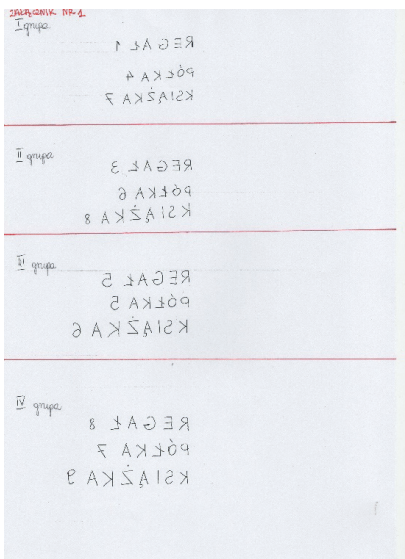 ZAŁĄCZNIK NR 1
I grupa
REGAŁ 1
PÓŁKA 4
KSIĄŻKA 7
II grupa
REGAŁ 3
PÓŁKA 6
KSIĄŻKA 8
III grupa
REGAŁ 5
PÓŁKA 5
KSIĄŻKA 6
IV grupa
REGAŁ 8
PÓŁKA 7
KSIĄŻKA 9